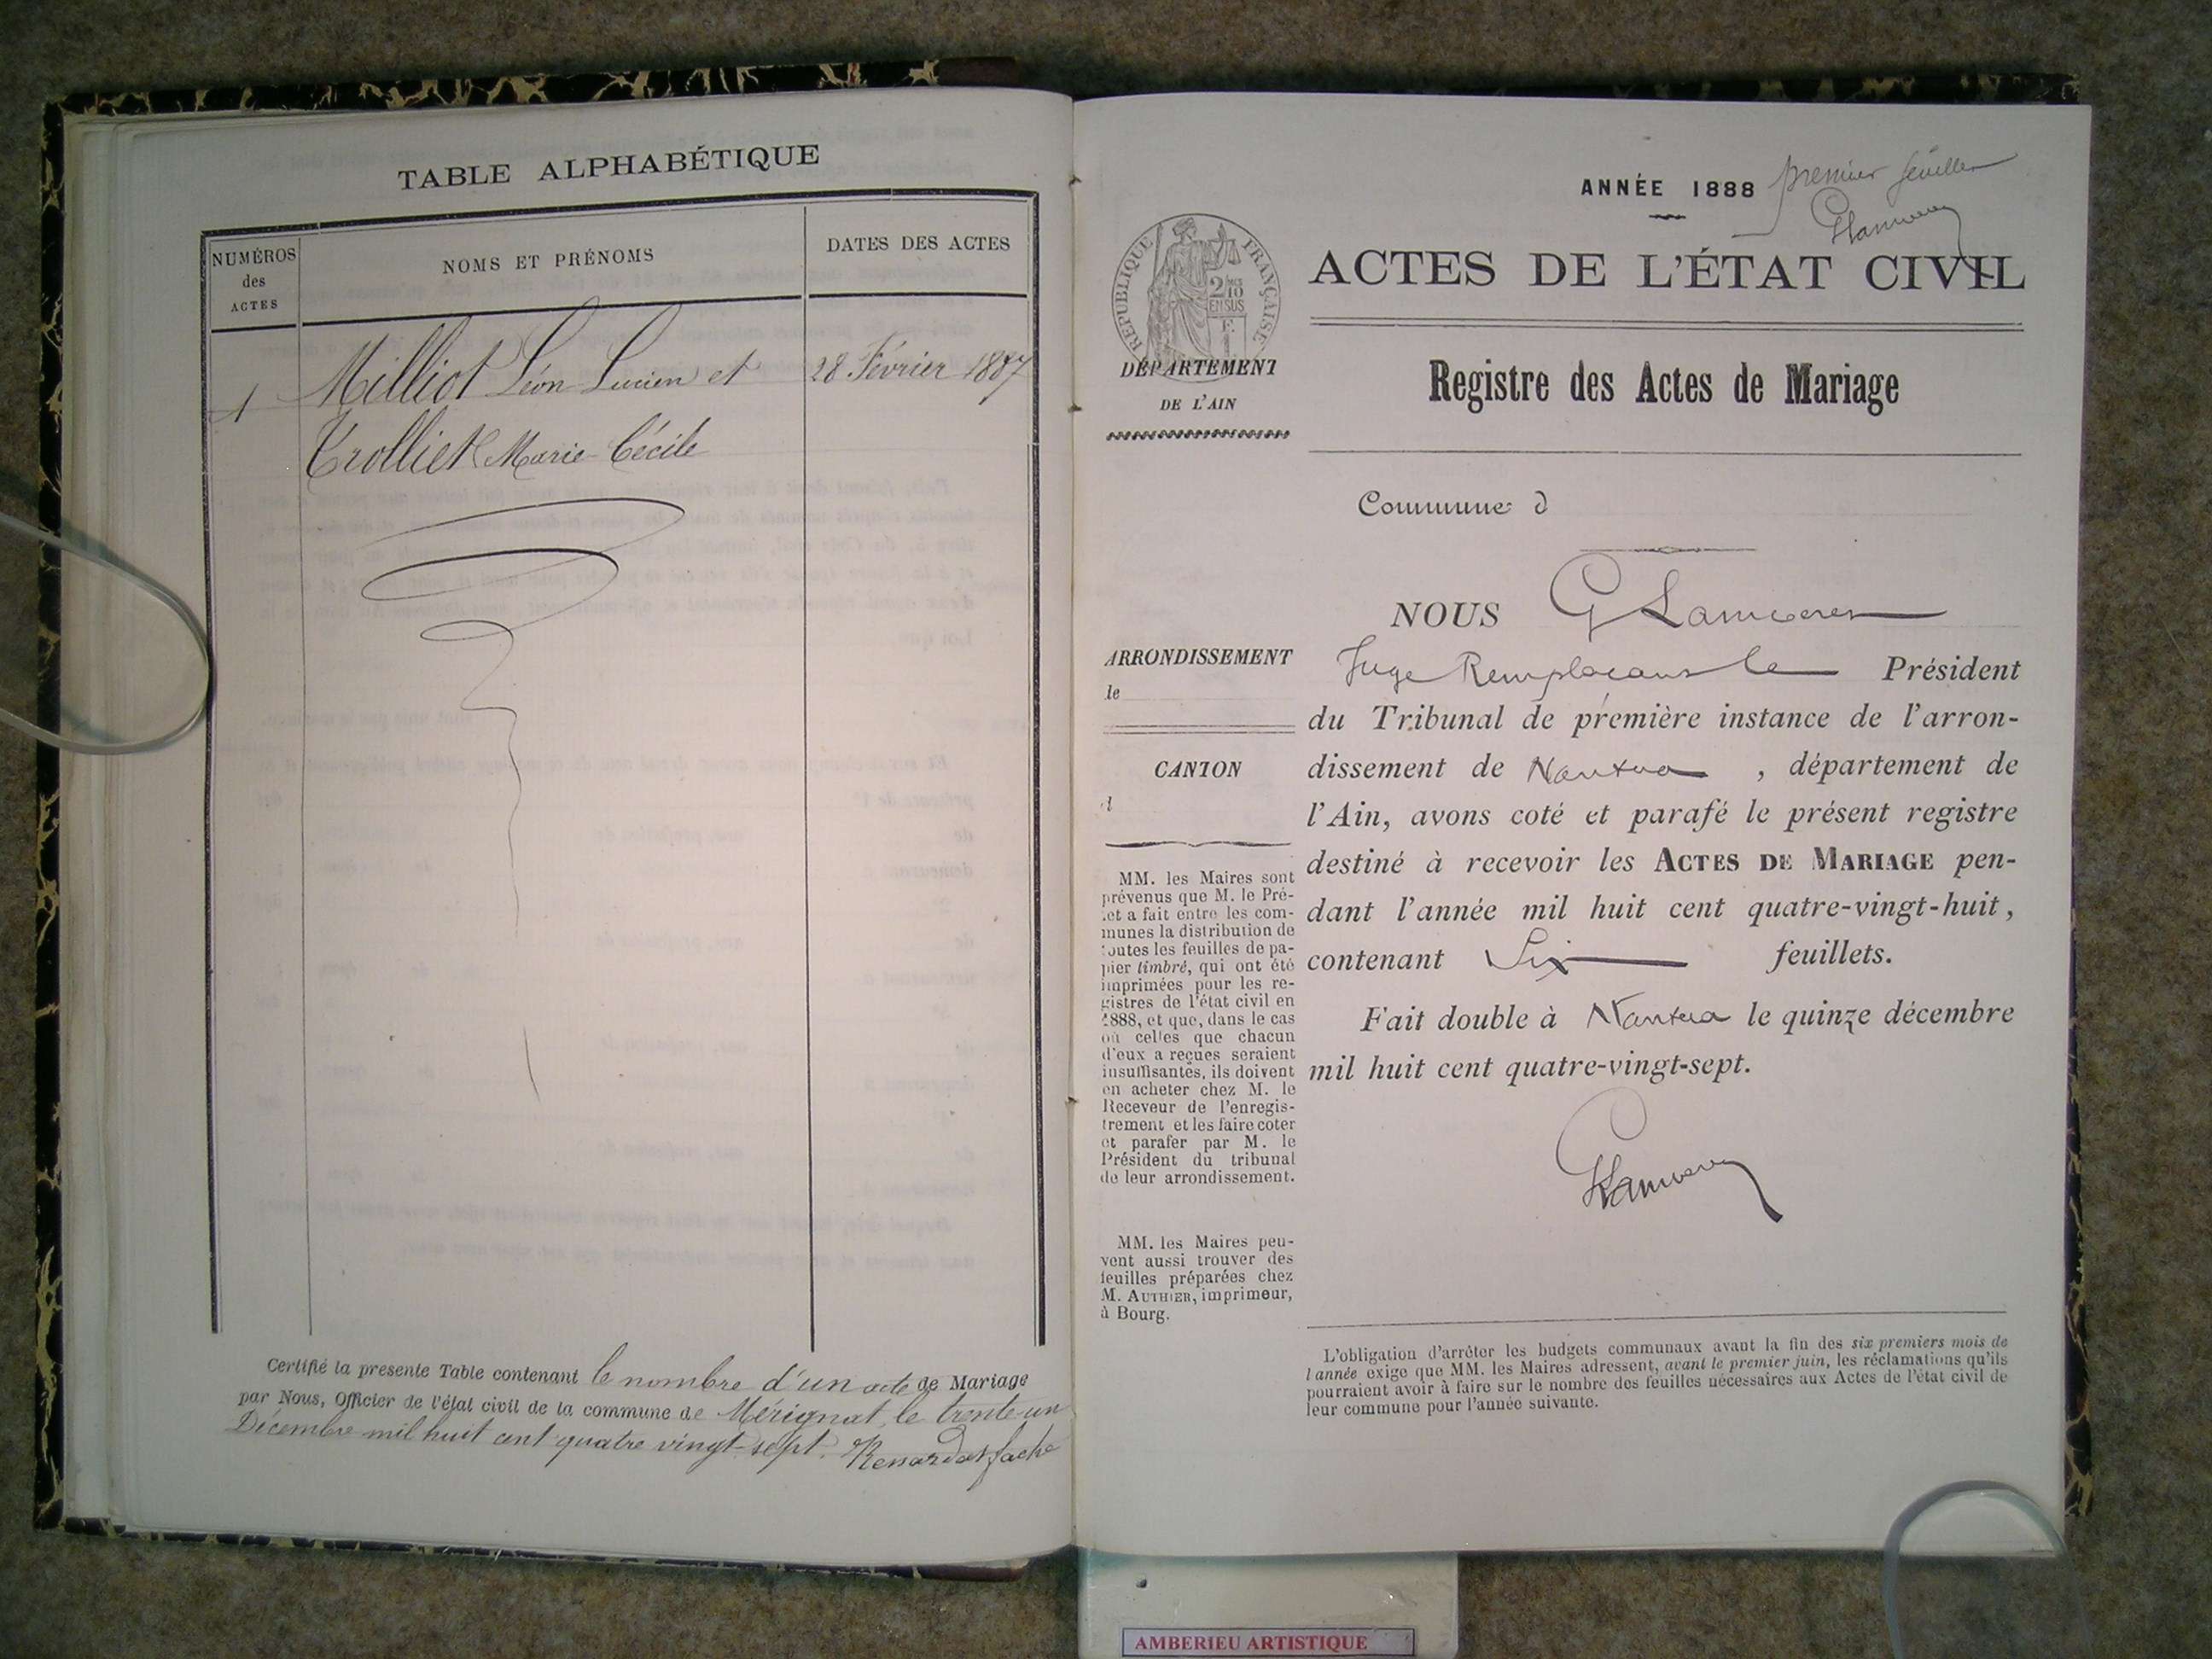 TABLE ALPHABÉTIQUE
NUMÉROS
des
ACTES
NOMS ET PRÉNOMS
DATES DES ACTES
1
Milliot Léon Lucien et
28 Février 1887
Trolliet Marie-Cécile
Certifié la presente Table contenant le nombre d'un acte de Mariage
par Nous, Officier de l'état civil de la commune de Mérignat, le trente-un
Décembre mil huit cent quatre vingt-sept.
ANNÉE 1888
premier feuillet
RÉPUBLIQUE FRANÇAISE
2/10
EN SUS
ACTES DE L'ÉTAT CIVIL
DÉPARTEMENT
DE L'AIN
Registre des Actes de Mariage
Commune d
NOUS
ARRONDISSEMENT
de
CANTON
d
Juge Remplaçant le Président
du Tribunal de première instance de l'arron-
dissement de Nantua , département de
l'Ain, avons coté et parafé le présent registre
destiné à recevoir les ACTES DE MARIAGE pen-
dant l'année mil huit cent quatre-vingt-huit,
contenant Six feuillets.
Fait double à Nantua le quinze décembre
mil huit cent quatre-vingt-sept.
MM. les Maires sont
prévenus que M. le Pré-
fet a fait entre les com-
munes la distribution de
toutes les feuilles de pa-
pier timbré, qui ont été
imprimées pour les re-
gistres de l'état civil en
1888, et que, dans le cas
où celles que chacun
d'eux a reçues seraient
insuffisantes, ils doivent
en acheter chez M. le
Receveur de l'enregis-
trement et les faire coter
et parafer par M. le
Président du tribunal
de leur arrondissement.
MM. les Maires peu-
vent aussi trouver des
feuilles préparées chez
M. AUTHIER, imprimeur,
à Bourg.
L'obligation d'arrêter les budgets communaux avant la fin des six premiers mois de
l'année exige que MM. les Maires adressent, avant le premier juin, les réclamations qu'ils
pourraient avoir à faire sur le nombre des feuilles nécessaires aux Actes de l'état civil de
leur commune pour l'année suivante.
AMBERIEU ARTISTIQUE